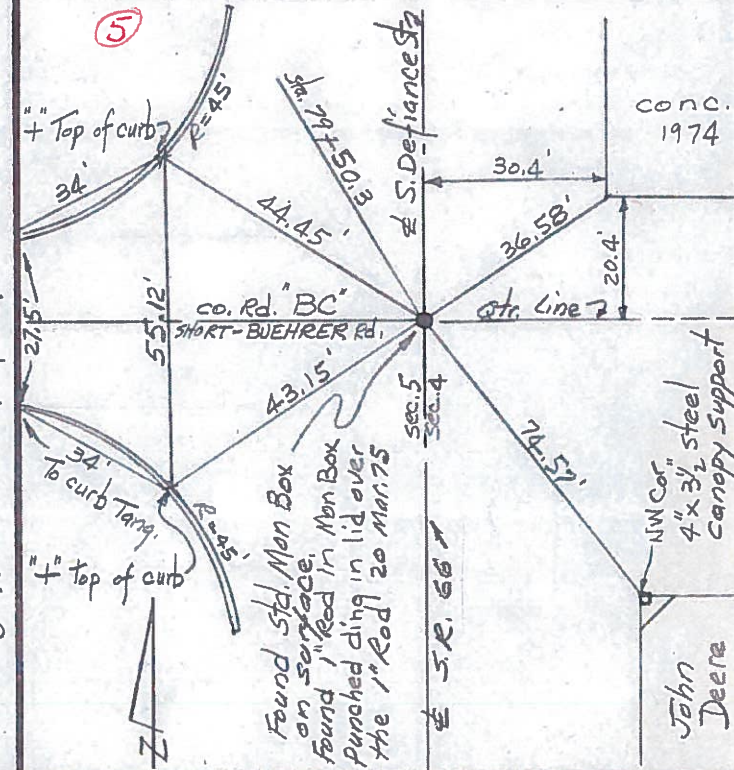 5
"+" Top of curb
R=45'
34'
Sta. 79+50.3
℄ S. Defiance St.
conc.
1974
30.4'
44.45'
36.58'
20.4'
27.5'
55.12'
Co. Rd. "BC"
SHORT-BUEHRER Rd.
Qtr. Line
43.15'
Sec. 5
Sec. 4
74.57'
34'
To curb Tang.
R=45'
"+" top of curb
Found Std. Mon Box
on surface.
Found 1" Rod in Mon Box
Punched ding in lid over
the 1" Rod 20 Mar. 75
℄ S.R. 66
NW Cor
4" x 3½" steel
Canopy Support
John
Deere
N